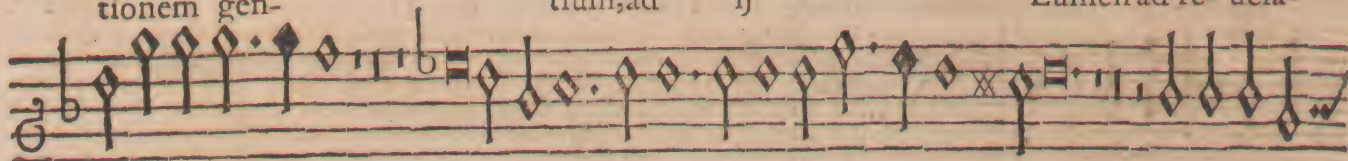 tionem gen- tium, ad ij Lumen ad re- uela-